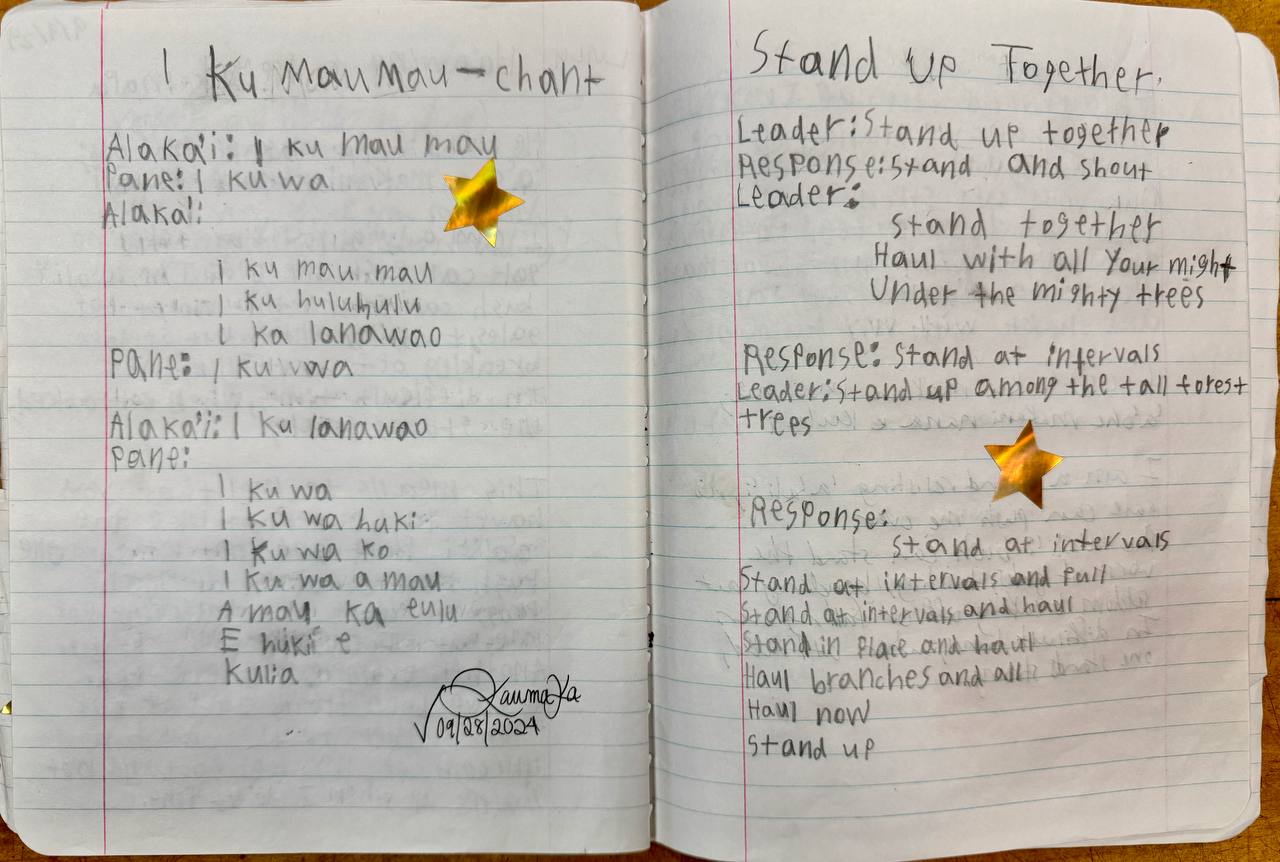 I Ku Mau Mau - chant
Alaka'i: I ku mau mau
Pane: I ku wa
Alaka'i:
I ku mau mau
I ku huluhulu
I ka lanawao
Pane: I ku wa
Alaka'i: I ku lanawao
Pane:
I ku wa
I ku wa huki
I ku wa ko
I ku wa a mau
A mau ka eulu
E huki e
Kulia
09/28/2024
Stand up Together.
Leader: Stand up together
Response: Stand and shout
Leader:
Stand together
Haul with all your might
Under the mighty trees
Response: Stand at intervals
Leader: Stand up among the tall forest
trees
Response:
Stand at intervals
Stand at intervals and pull
Stand at intervals and haul
Stand in place and haul
Haul branches and all
Haul now
Stand up